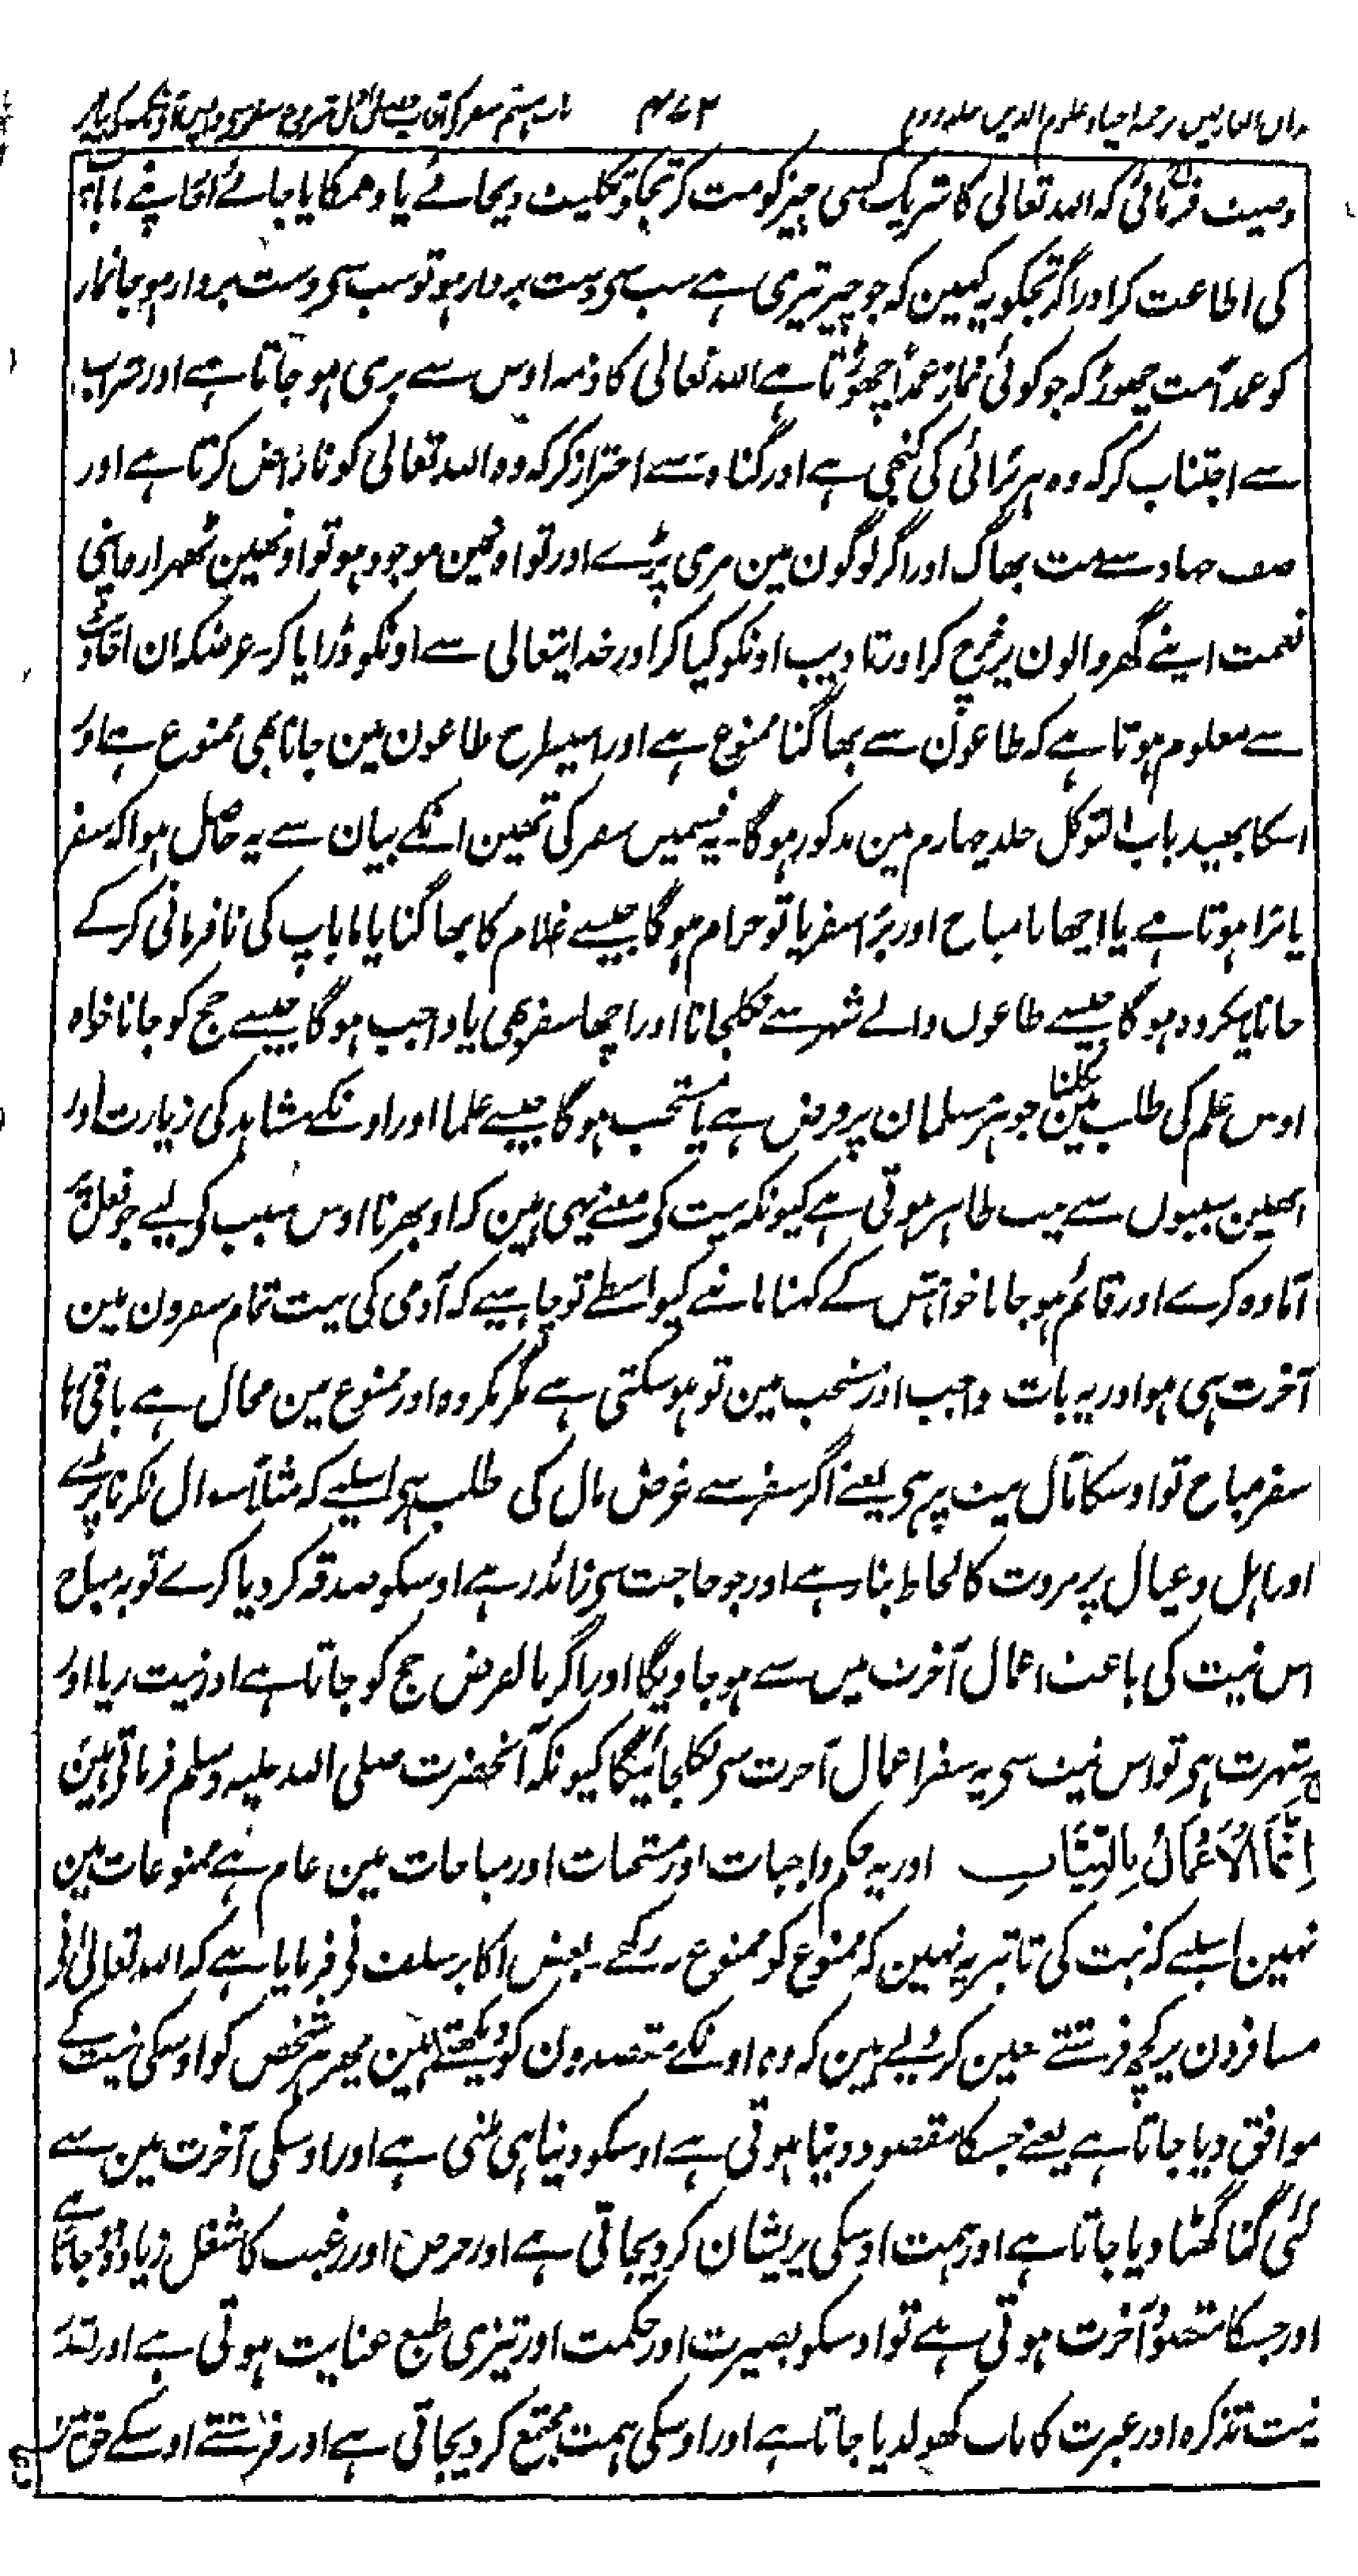 مذاق العارفین ترجمہ احیاء علوم الدین جلد دوم ۴۷۲ باب ہفتم سفر کے آداب
وصیت فرمائی کہ اللہ تعالی کا شریک کسی چیز کو مت کر تجکو تکلیف دیجائے یا دھمکایا جائے اپنے ماباپ
کی اطاعت کر اور اگر تجکو یہ کہین کہ جو چیز تیری ہے سب سی دست بردار ہو تو سب سی دست بردار ہو جا نماز
کو عمداً مت چھوڑ کہ جو کوئی نماز عمداً چھوڑتا ہے اللہ تعالی کا ذمہ اوس سے بری ہو جاتا ہے اور شراب
سے اجتناب کر کہ وہ ہر برائی کی کنجی ہے اور گناہ سے احتراز کر کہ وہ اللہ تعالی کو ناراض کرتا ہے اور
صف جہاد سے مت بھاگ اور اگر لوگون مین مری پڑے اور تو اونمین موجود ہو تو اونھین ٹھہرا رہ اپنی
نعمت اپنے گھر والون پر خرچ کر اور تادیب اونکو کیا کر اور خدایتعالی سے اونکو ڈرایا کر۔ غرضکہ ان
سے معلوم ہوتا ہے کہ طاعون سے بھاگنا ممنوع ہے اور اسیطرح طاعون مین جانا بھی ممنوع ہے اور
اسکا بھید باب التوکل جلد چہارم مین مذکور ہوگا۔ یہ قسمیں سفر کی تھین انکے بیان سے یہ حاصل ہوا کہ سفر
یا برا ہوتا ہے یا اچھا یا مباح اور برا سفر یا تو حرام ہوگا جیسے غلام کا بھاگنا یا ماباپ کی نافرمانی کرکے
جانا یا مکروہ ہوگا جیسے طاعون والے شہر سے نکلجانا اور اچھا سفر بھی یا واجب ہوگا جیسے حج کو جانا خواہ
اوس علم کی طلب مین نکلنا جو ہر مسلمان پر فرض ہے یا مستحب ہوگا جیسے علما اور اونکے مشاہد کی زیارت اور
انھین سببوں سے نیت ظاہر ہوتی ہے کیونکہ نیت کی معنے یہی ہین کہ اوبھرنا اوس سبب کی لیے جو فعل پر
آمادہ کرے اور قائم ہو جانا خواہش کے کہنا ماننے کیواسطے تو چاہیے کہ آدمی کی نیت تمام سفرون مین
آخرت ہی ہو اور یہ بات واجب اور مستحب مین تو ہو سکتی ہے مگر مکروہ اور ممنوع مین محال ہے باقی رہا
سفر مباح تو اوسکا مآل نیت پر ہی یعنے اگر سفر سے غرض مال کی طلب ہی اسلیے کہ مثلاً سوال نکرنا پڑے
اور اہل و عیال پر مروت کا لحاظ بنا رہے اور جو حاجت سی زائد رہے اوسکو صدقہ کر دیا کرے تو یہ مباح
اس نیت کی باعث اعمال آخرت میں سے ہو جاویگا اور اگر بالفرض حج کو جاتا ہے اور نیت ریا اور
شہرت ہی تو اس نیت سی یہ سفر اعمال آخرت سی نکلجائیگا کیونکہ آنحضرت صلی اللہ علیہ وسلم فرماتی ہین
اِنَّمَا الْاَعْمَالُ بِالنِّیَّاتِ اور یہ حکم واجبات اور مستحبات اور مباحات مین عام ہے ممنوعات مین
نہین اسلیے کہ نیت کی تاثیر یہ نہین کہ ممنوع کو ممنوع نہ رکھے۔ بعض اکابر سلف نی فرمایا ہے کہ اللہ تعالیٰ نی
مسافرون پر کچھ فرشتے معین کر دیے ہین کہ وہ اونکے مقصدون کو دیکھتے ہین پھر ہر شخص کو اوسکی نیت کے
موافق دیا جاتا ہے یعنے جسکا مقصود دنیا ہوتی ہے اوسکو دنیا ہی ملتی ہے اور اوسکی آخرت مین سے
کئی گنا گھٹا دیا جاتا ہے اور ہمت اوسکی پریشان کر دیجاتی ہے اور حرص اور رغبت کا شغل زیادہ ہو جاتا ہے
اور جسکا مقصود آخرت ہوتی ہے تو اوسکو بصیرت اور حکمت اور تیزی طبع عنایت ہوتی ہے اور بقدر
نیت تذکرہ اور عبرت کا باب کھولدیا جاتا ہے اور اوسکی ہمت مجتمع کر دیجاتی ہے اور فرشتے اوسکے حق مین